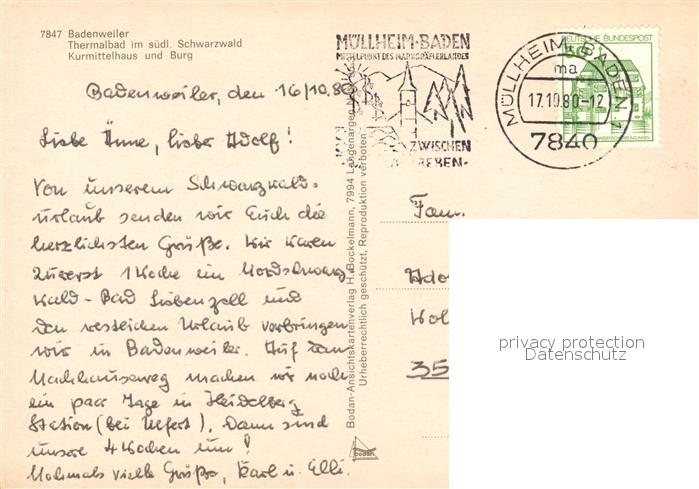 7847 Badenweiler
Thermalbad im südl. Schwarzwald
Kurmittelhaus und Burg
Badenweiler, den 16/10.80
Liebe Änne, lieber Adolf!
Von unserem Schwarzwald-
urlaub senden wir Euch die
herzlichsten Grüße. Wir waren
zuerst 1 Woche im Nordschwarz-
wald - Bad Liebenzell und
den restlichen Urlaub verbringen
wir in Badenweiler. Auf dem
Nachhauseweg machen wir noch
ein paar Tage in Heidelberg
Station (bei Ulfert). Dann sind
unsere 4 Wochen um!
Nochmals viele Grüße, Karl u. Elli.
Bodan-Ansichtskartenverlag H. Bockelmann, 7994 Langenargen
Urheberrechtlich geschützt, Reproduktion verboten
bodan
MÜLLHEIM·BADEN
MITTELPUNKT DES MARKGRÄFLERLANDES
ZWISCHEN
REBEN-
DEUTSCHE BUNDESPOST
50
MÜLLHEIM, BADEN 1
ma
17.10.80-12
7840
Fam.
Ado
35
privacy protection
Datenschutz